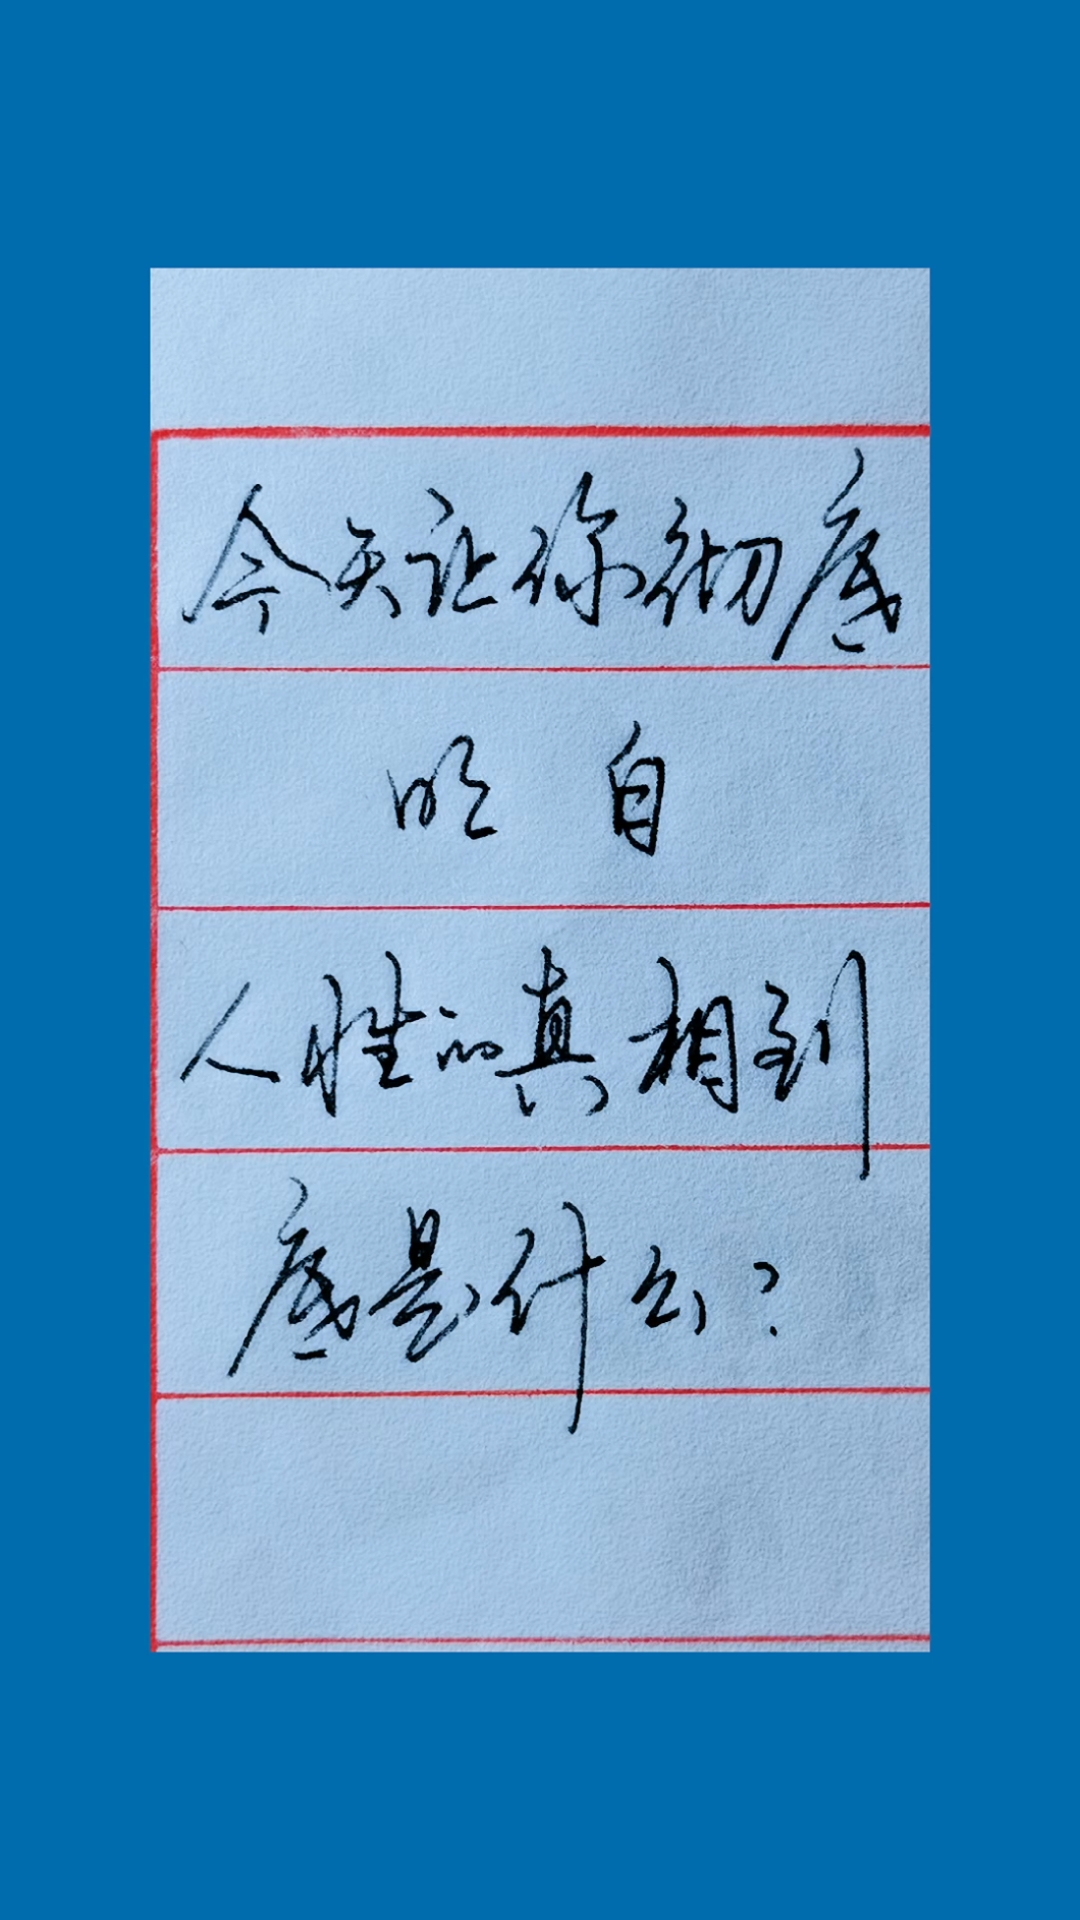 今天让你彻底
明 自
人性的真相到
底是什么?